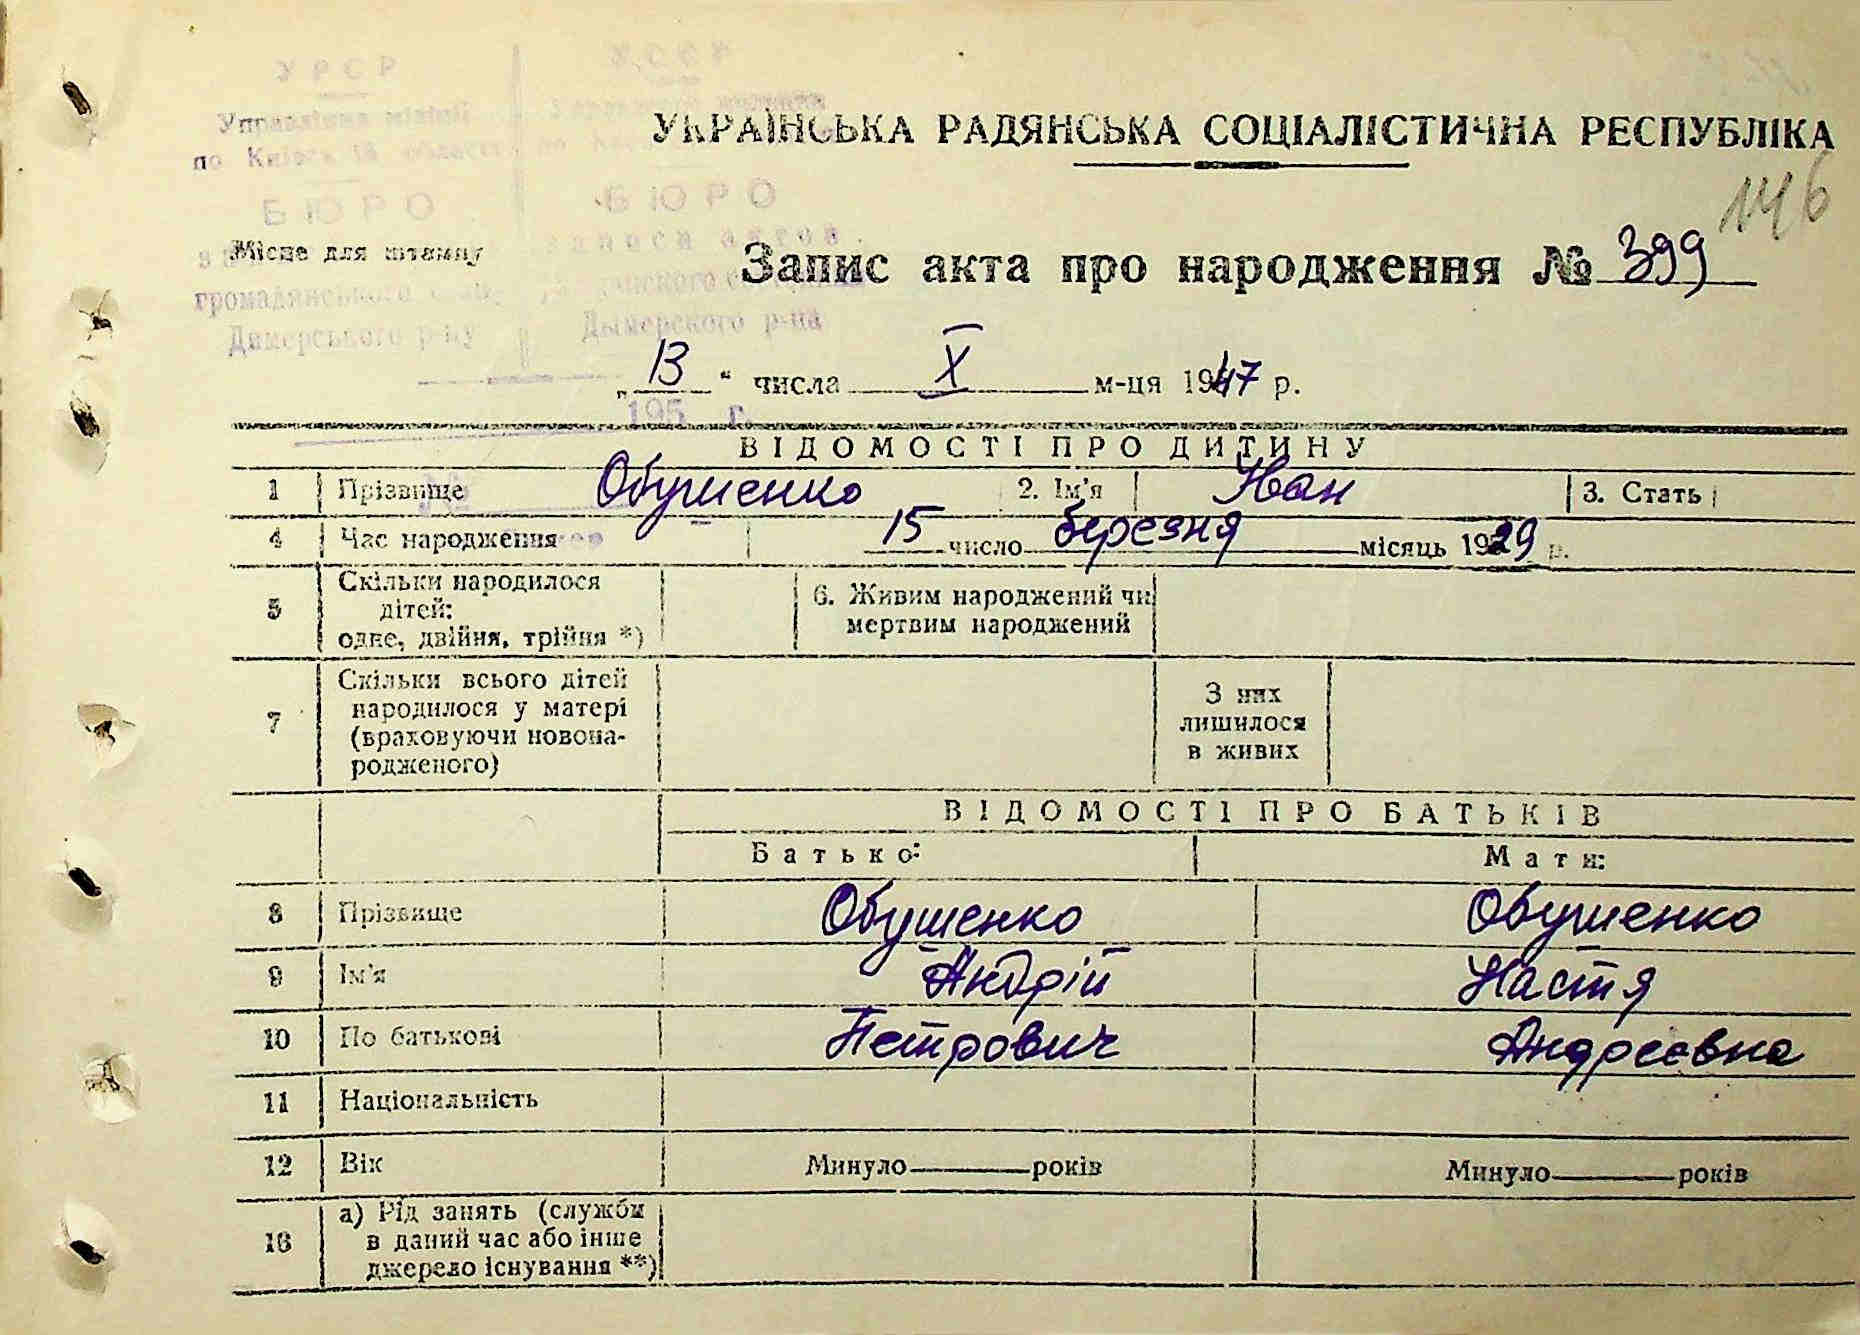 УРСР
УССР
Управління міліції
по Київській області
БЮРО
БЮРО
записи актов
громадянського
Димерського р-ну
Дымерского р-на
195 г.
УКРАЇНСЬКА РАДЯНСЬКА СОЦІАЛІСТИЧНА РЕСПУБЛІКА
146
Місце для штампу
Запис акта про народження № 399
„13“ числа X м-ця 1947 р.
ВІДОМОСТІ ПРО ДИТИНУ
1 Прізвище Обушенко 2. Ім'я Иван 3. Стать
4 Час народження 15 число березня місяць 1929 р.
5 Скільки народилося
дітей:
одне, двійня, трійня *)
6. Живим народжений чи
мертвим народжений
7 Скільки всього дітей
народилося у матері
(враховуючи новона-
родженого)
З них
лишилося
в живих
ВІДОМОСТІ ПРО БАТЬКІВ
Батько: Мати:
8 Прізвище Обушенко Обушенко
9 Ім'я Андрій Настя
10 По батькові Петрович Андреевна
11 Національність
12 Вік Минуло років Минуло років
13 а) Рід занять (служби
в даний час або інше
джерело існування **)